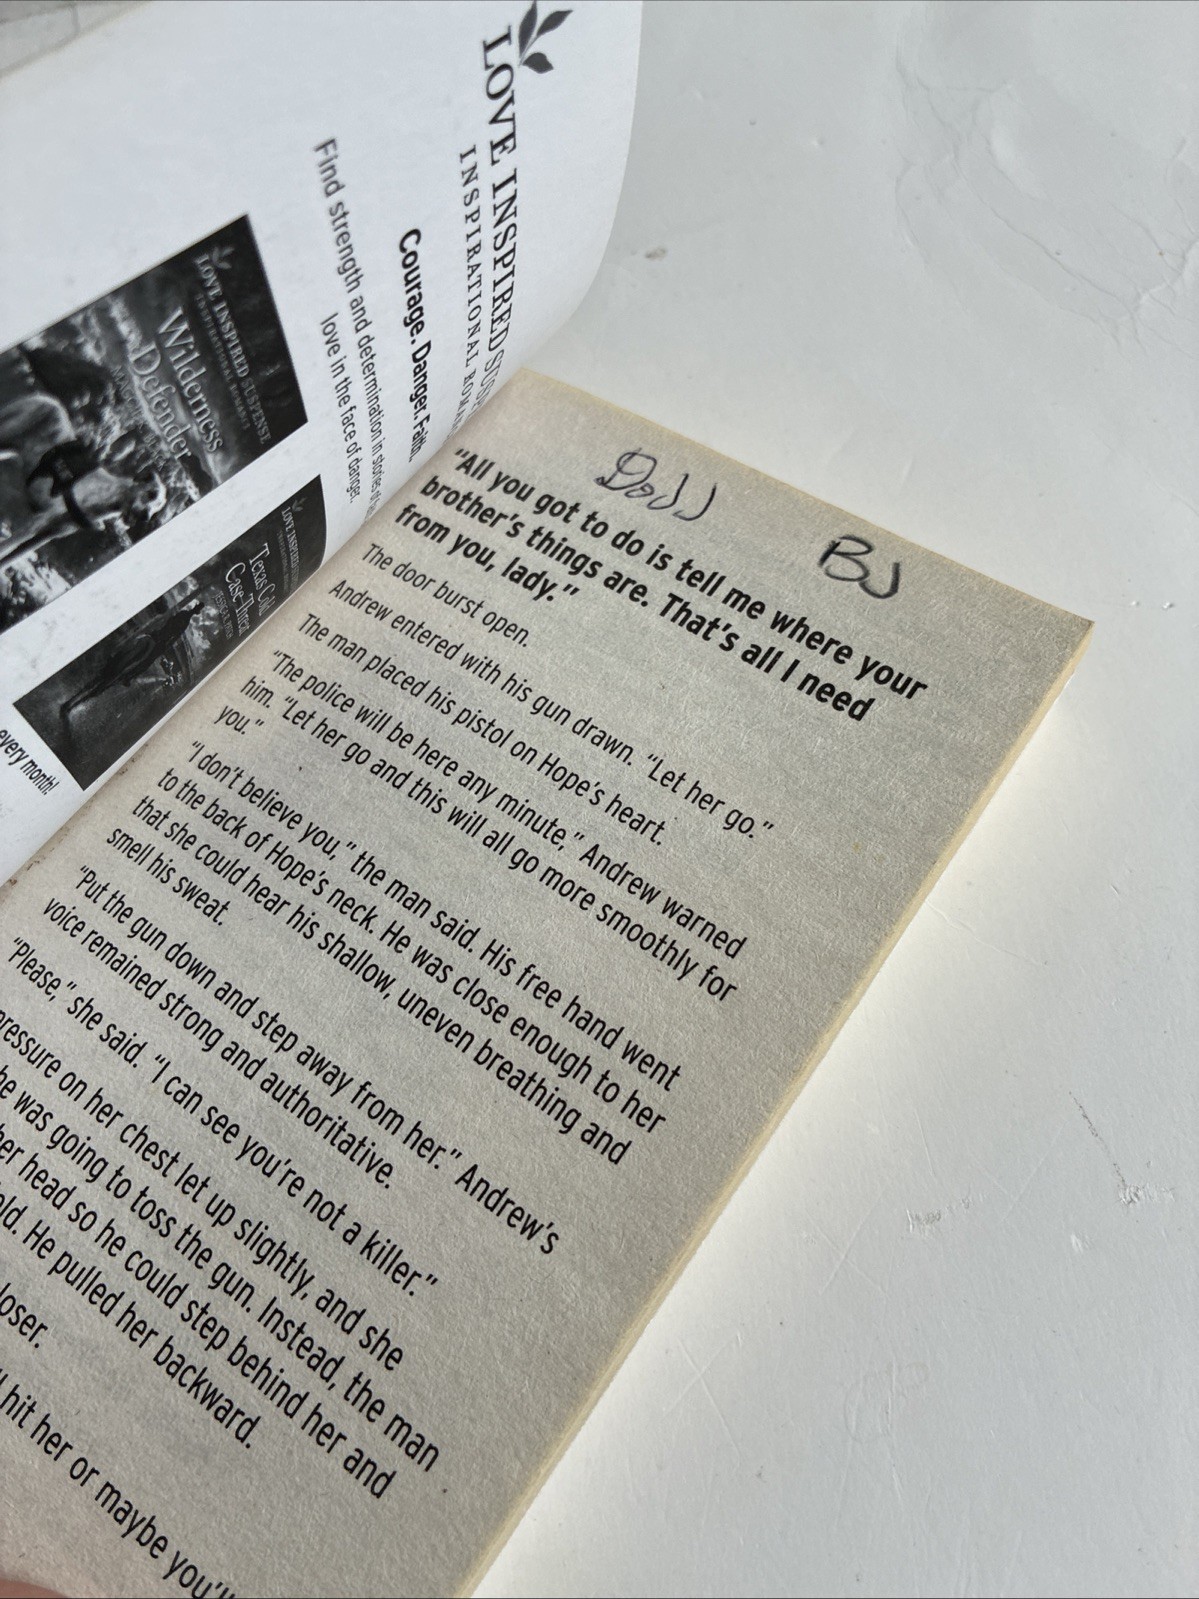 LOVE INSPIRED
INSPIRATIONAL
Courage. Danger. Faith.
Find strength and determination in stories of
love in the face of danger.
LOVE INSPIRED SUSPENSE
INSPIRATIONAL ROMANCE
Wilderness
Defender
LOVE INSPIRED
Texas Cold
Case Threat
every month!
Dodd
BJ
"All you got to do is tell me where your
brother's things are. That's all I need
from you, lady."
The door burst open.
Andrew entered with his gun drawn. "Let her go."
The man placed his pistol on Hope's heart.
"The police will be here any minute," Andrew warned
him. "Let her go and this will all go more smoothly for
you."
"I don't believe you," the man said. His free hand went
to the back of Hope's neck. He was close enough to her
that she could hear his shallow, uneven breathing and
smell his sweat.
"Put the gun down and step away from her." Andrew's
voice remained strong and authoritative.
"Please," she said. "I can see you're not a killer."
pressure on her chest let up slightly, and she
he was going to toss the gun. Instead, the man
her head so he could step behind her and
old. He pulled her backward.
loser.
hit her or maybe you'll